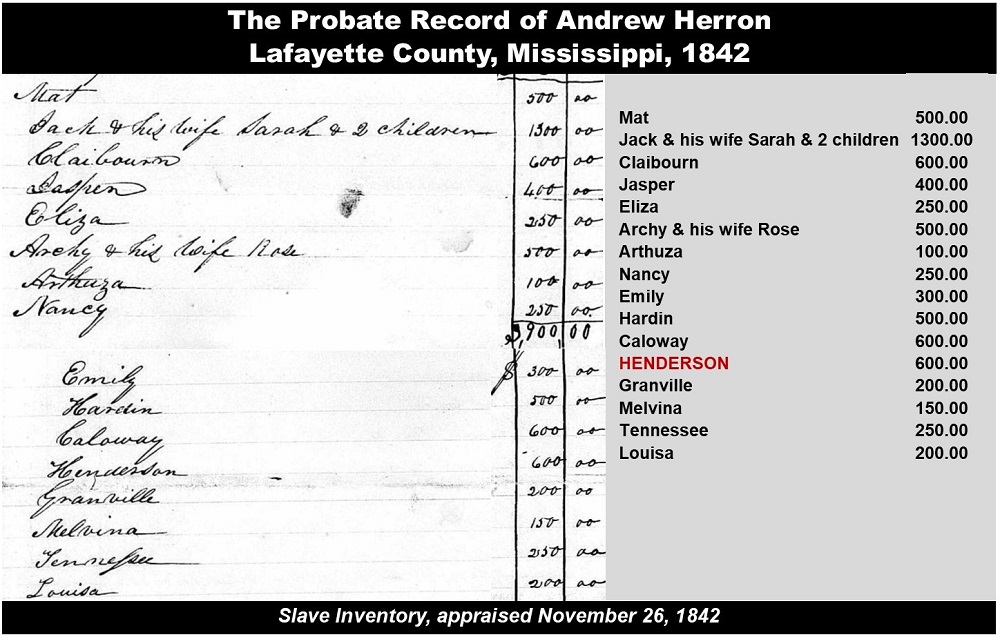 The Probate Record of Andrew Herron
Lafayette County, Mississippi, 1842
Mat 500 00
Jack & his wife Sarah & 2 children 1300 00
Claibourn 600 00
Jasper 400 00
Eliza 250 00
Archy & his wife Rose 500 00
Arthuza 100 00
Nancy 250 00
3,900,00
Emily $ 300 00
Hardin 500 00
Caloway 600 00
Henderson 600 00
Granville 200 00
Melvina 150 00
Tennessee 250 00
Louisa 200 00
Mat 500.00
Jack & his wife Sarah & 2 children 1300.00
Claibourn 600.00
Jasper 400.00
Eliza 250.00
Archy & his wife Rose 500.00
Arthuza 100.00
Nancy 250.00
Emily 300.00
Hardin 500.00
Caloway 600.00
HENDERSON 600.00
Granville 200.00
Melvina 150.00
Tennessee 250.00
Louisa 200.00
Slave Inventory, appraised November 26, 1842